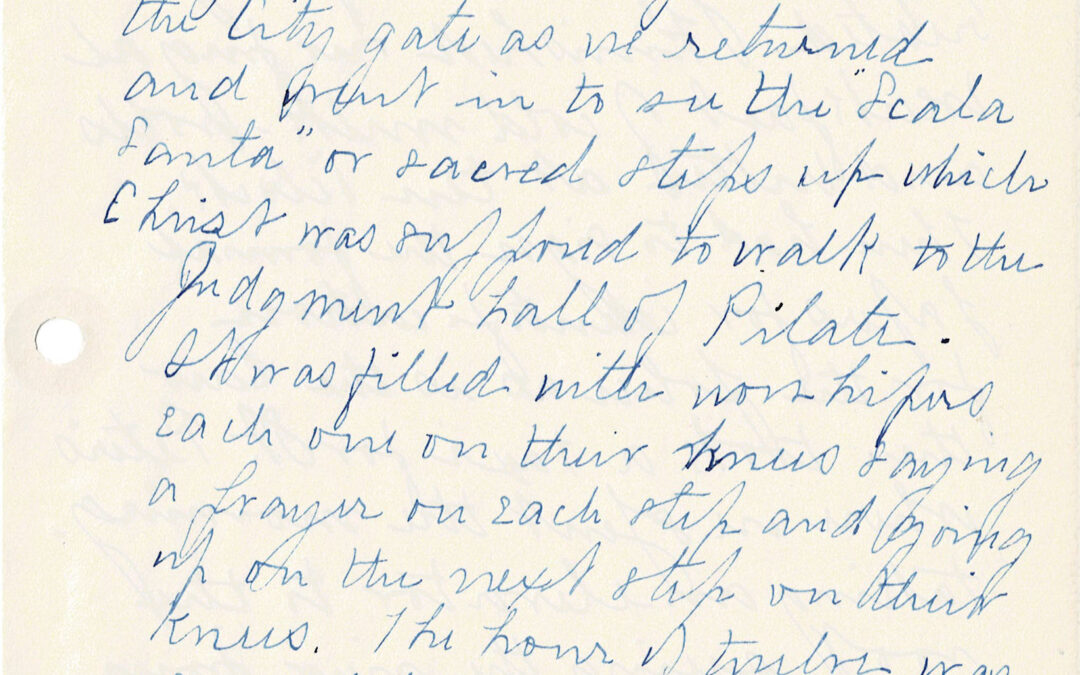 the City gate as we returned
and went in to see the "Scala
Santa" or sacred steps up which
Christ was suffored to walk to the
Judgment hall of Pilate.
It was filled with worshipers
each one on their knees saying
a prayer on each step and going
up on the next step on their
knees. The hour of twelve was